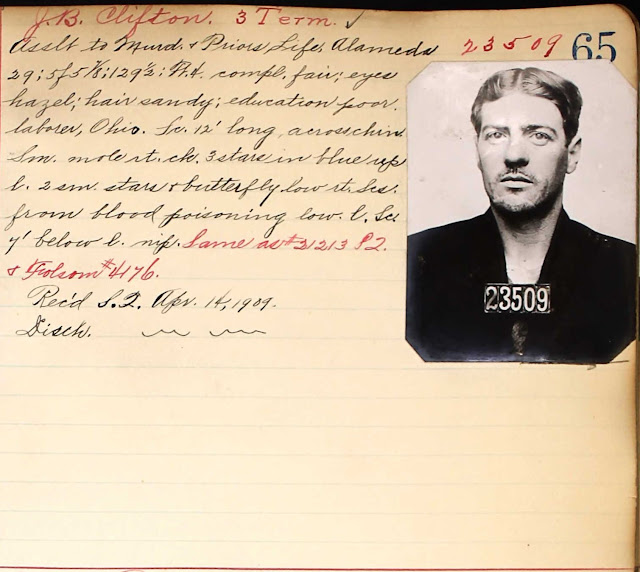 J. B. Clifton. 3 Term. ✓
Asslt to Murd. & Priors, Life, Alameda 23509 65
29; 5f 5 7/8; 129 1/2; compl. fair; eyes
hazel; hair sandy; education poor.
laborer, Ohio. Sc. 12' long across chin
Sm. mole rt. ck. 3 stars in blue up
l. 2 sm. stars & butterfly low rt. Scs.
from blood poisoning low. l. Sc
below l. nip. Same as #21213 S.Q.
& Folsom #4176.
Rec'd S.Q. Apr. 14, 1909.
Disch.
23509